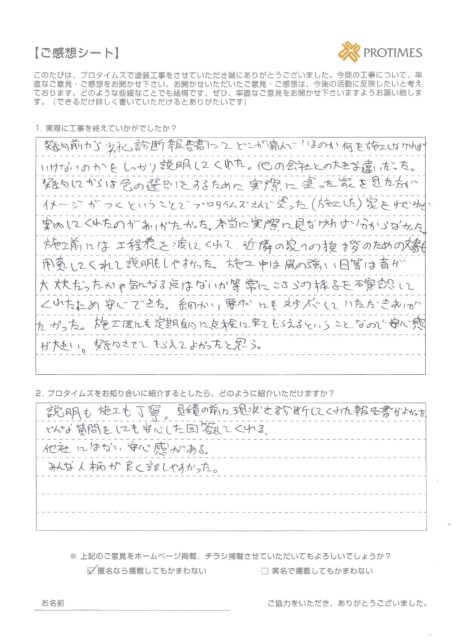 【ご感想シート】
PROTIMES
このたびは、プロタイムズで塗装工事をさせていただき誠にありがとうございました。今回の工事について、率
直なご意見・ご感想をお聞かせ下さい。お聞かせいただいたご意見・ご感想は、今後の活動に反映したいと考え
ております。どのような些細なことでも結構です。ぜひ、率直なご意見をお聞かせ下さいますようお願い致しま
す。（できるだけ詳しく書いていただけるとありがたいです）
1. 実際に工事を終えていかがでしたか？
契約前から劣化診断報告書にてどこが痛んでいるのか何を施工しなければ
いけないのかをしっかり説明してくれた。他の会社との大きな違いだった。
契約してからは色の選別をするために実際に塗った家を見た方が
イメージがつくということでプロタイムズさんで塗った(施工した)家を
案内してくれたのがありがたかった。本当に実際に見なければ分からなかった。
施工前には工程表を渡してくれて近隣の家への挨拶のための文書も
用意してくれて説明しやすかった。施工中は風の強い日等は音が
大丈夫だったかや気になる点はないか等常にこちらの様子を確認して
くれたため安心できた。細かい要望にも対応していただきありが
たかった。施工後にも定期的に点検に来てもらえるということなので安心感
が大きい。契約させてもらえてよかったと思う。
2. プロタイムズをお知り合いに紹介するとしたら、どのように紹介いただけますか？
説明も施工も丁寧。見積の前に現状を診断してくれた報告書がよかった。
どんな質問をしても安心した回答をしてくれる。
他社にはない安心感がある。
みんな人柄が良く話しやすかった。
※ 上記のご意見をホームページ掲載、チラシ掲載させていただいてもよろしいでしょうか？
☑匿名なら掲載してもかまわない □ 実名で掲載してもかまわない
お名前
ご協力をいただき、ありがとうございました。